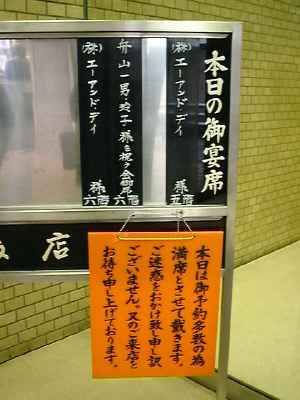 本日の御宴席
(株)エーアンド・デイ 様 五階
舟山一男・玲子様を祝う会御席 六階
(株)エーアンド・デイ 様 六階
飯店
本日は御予約多数の為
満席とさせて戴きます。
ご迷惑をおかけ致し申し訳
ございません。又のご来店を
お待ち申し上げております。